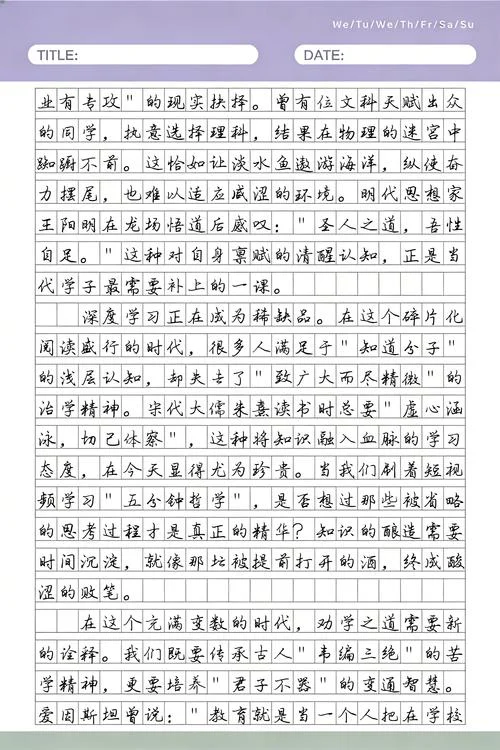 We/Tu/We/Th/Fr/Sa/Su
TITLE:
DATE:
业有专攻"的现实抉择。曾有位文科天赋出众
的同学，执意选择理科，结果在物理的迷宫中
踟蹰不前。这恰如让淡水鱼遨游海洋，纵使奋
力摆尾，也难以适应咸涩的环境。明代思想家
王阳明在龙场悟道后感叹："圣人之道，吾性
自足。"这种对自身禀赋的清醒认知，正是当
代学子最需要补上的一课。
深度学习正在成为稀缺品。在这个碎片化
阅读盛行的时代，很多人满足于"知道分子"
的浅层认知，却失去了"致广大而尽精微"的
治学精神。宋代大儒朱熹读书时总要"虚心涵
泳，切己体察"，这种将知识融入血脉的学习
态度，在今天显得尤为珍贵。当我们刷着短视
频学习"五分钟哲学"，是否想过那些被省略
的思考过程才是真正的精华？知识的酿造需要
时间沉淀，就像那坛被提前打开的酒，终成酸
涩的败笔。
在这个充满变数的时代，劝学之道需要新
的诠释。我们既要传承古人"韦编三绝"的苦
学精神，更要培养"君子不器"的变通智慧。
爱因斯坦曾说："教育就是当一个人把在学校